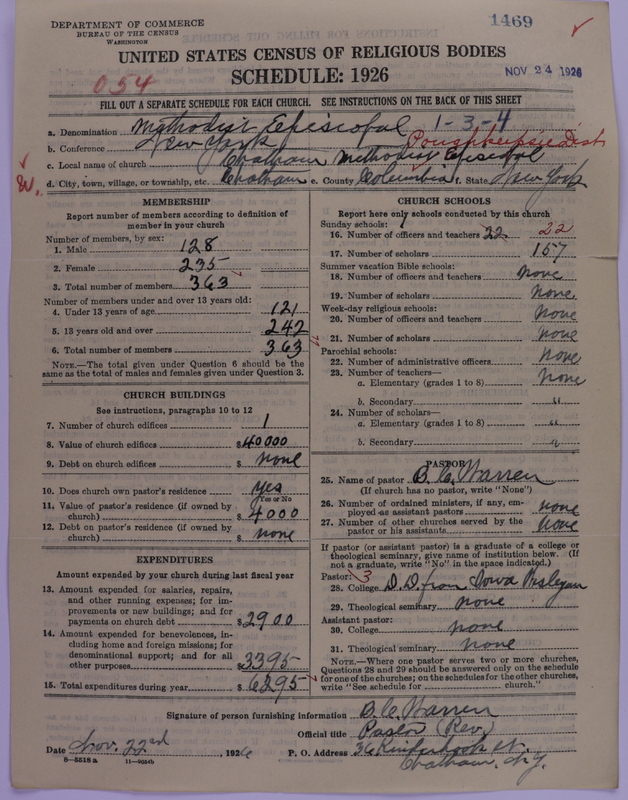 DEPARTMENT OF COMMERCE
BUREAU OF THE CENSUS
WASHINGTON
1469
UNITED STATES CENSUS OF RELIGIOUS BODIES
SCHEDULE: 1926
NOV 24 1926
054
FILL OUT A SEPARATE SCHEDULE FOR EACH CHURCH. SEE INSTRUCTIONS ON THE BACK OF THIS SHEET
a. Denomination Methodist Episcopal 1-3-4
b. Conference New York Poughkeepsie Dist
c. Local name of church Chatham Methodist Episcopal
d. City, town, village, or township, etc. Chatham e. County Columbia f. State New York
MEMBERSHIP
Report number of members according to definition of
member in your church
Number of members, by sex:
1. Male 128
2. Female 235
3. Total number of members 363
Number of members under and over 13 years old:
4. Under 13 years of age 121
5. 13 years old and over 242
6. Total number of members 363
NOTE.—The total given under Question 6 should be the
same as the total of males and females given under Question 3.
CHURCH BUILDINGS
See instructions, paragraphs 10 to 12
7. Number of church edifices 1
8. Value of church edifices $40000
9. Debt on church edifices $ none
10. Does church own pastor's residence yes
Yes or No
11. Value of pastor's residence (if owned by
church) $4000
12. Debt on pastor's residence (if owned by
church) $ none
EXPENDITURES
Amount expended by your church during last fiscal year
13. Amount expended for salaries, repairs,
and other running expenses; for im-
provements or new buildings; and for
payments on church debt $2900
14. Amount expended for benevolences, in-
cluding home and foreign missions; for
denominational support; and for all
other purposes $3395
15. Total expenditures during year $6295
CHURCH SCHOOLS
Report here only schools conducted by this church
Sunday schools: 1
16. Number of officers and teachers 22 22
17. Number of scholars 157
Summer vacation Bible schools:
18. Number of officers and teachers none
19. Number of scholars none
Week-day religious schools:
20. Number of officers and teachers none
21. Number of scholars none
Parochial schools:
22. Number of administrative officers none
23. Number of teachers—
a. Elementary (grades 1 to 8) none
b. Secondary "
24. Number of scholars—
a. Elementary (grades 1 to 8) "
b. Secondary "
PASTOR
25. Name of pastor B. C. Warren
(If church has no pastor, write "None")
26. Number of ordained ministers, if any, em-
ployed as assistant pastors none
27. Number of other churches served by the
pastor or his assistants none
If pastor (or assistant pastor) is a graduate of a college or
theological seminary, give name of institution below. (If
not a graduate, write "No" in the space indicated.)
Pastor: 3
28. College D.D. from Iowa Wesleyan
29. Theological seminary none
Assistant pastor:
30. College none
31. Theological seminary none
NOTE.—Where one pastor serves two or more churches,
Questions 28 and 29 should be answered only on the schedule
for one of the churches; on the schedules for the other churches,
write "See schedule for church."
Signature of person furnishing information B. C. Warren
Official title Pastor (Rev)
Date Nov. 22nd, 1926 P. O. Address 36 Kinderhook St.
Chatham, N.Y.
8—5518 a 11—9054b